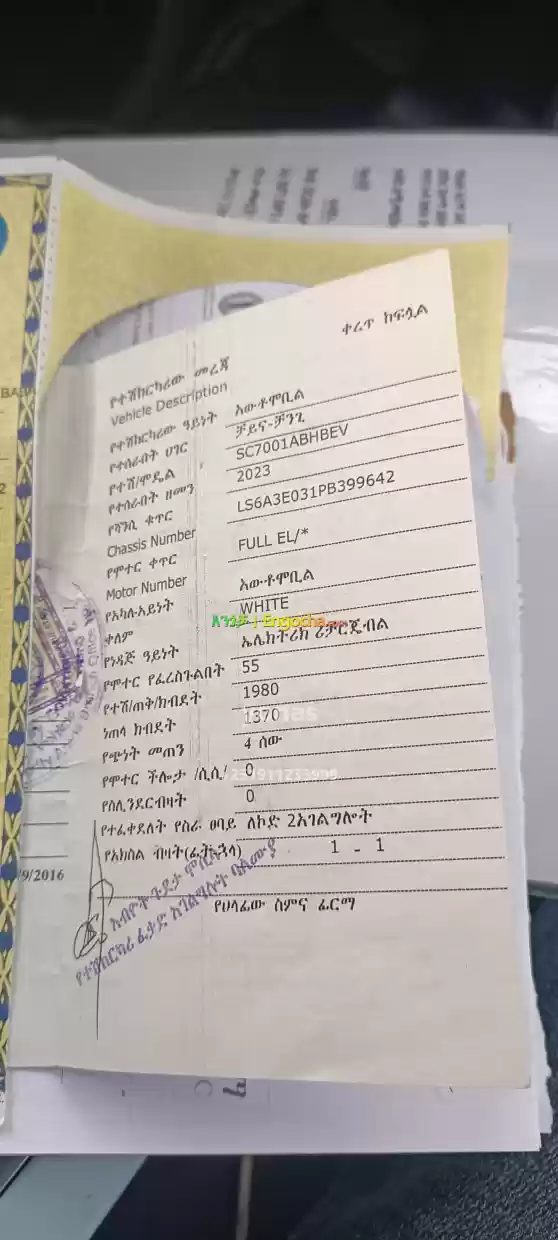 ቀረጥ ከፍሏል
የተሽከርካሪው መረጃ
Vehicle Description
የተሽከርካሪው ዓይነት አውቶሞቢል
የተሰራበት ሀገር ቻይና-ቻንጊ
የተሽ/ሞዴል SC7001ABHBEV
የተሰራበት ዘመን 2023
የሻንሲ ቁጥር LS6A3E031PB399642
Chassis Number
የሞተር ቀጥር FULL EL/*
Motor Number
የአካሉ-አይነት አውቶሞቢል
ቀለም WHITE
Engocha
የነዳጅ ዓይነት ኤሌክትሪክ ሪቻርጀብል
የሞተር የፈረስጉልበት 55
የተሽ/ጠቅ/ክብደት 1980
ነጠላ ክብደት 1370
የጭነት መጠን 4 ሰው
የሞተር ችሎታ /ሲሲ/ 0
የሲሊንደርብዛት 0
የተፈቀደለት የስራ ፀባይ ለኮድ 2አገልግሎት
የአክስል ብዛት(ፊት-ኋላ) 1 - 1
/9/2016
የተሽከርካሪ ፈቃድ አገልግሎት ባለሙያ
የሀላፊው ስምና ፊርማ